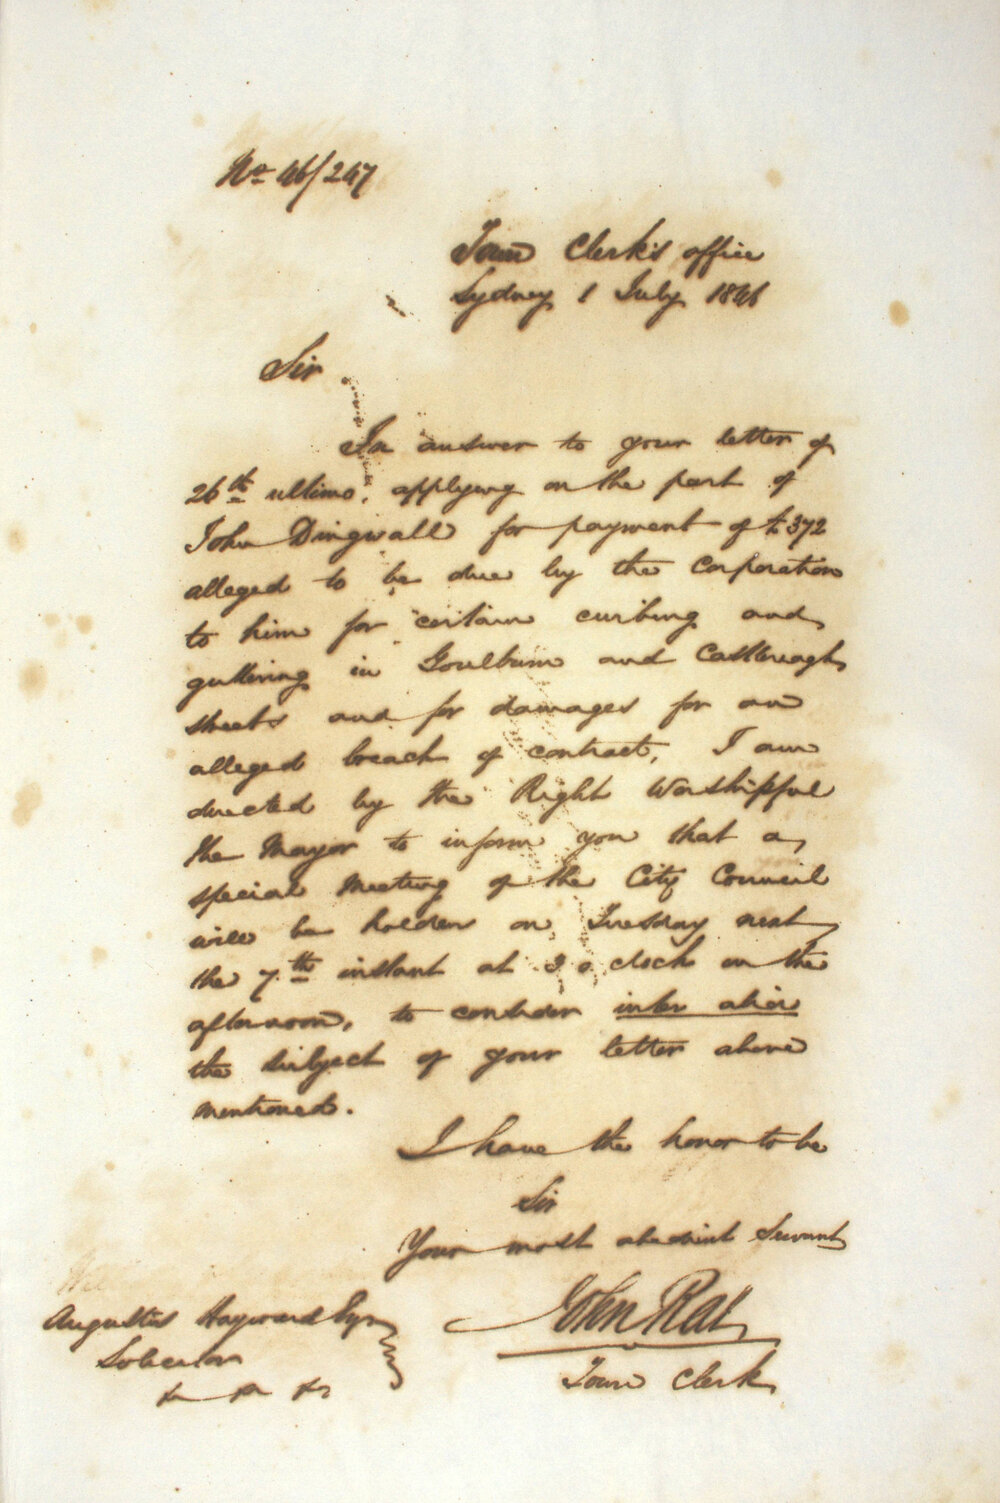 No 46/247
Town Clerk's office
Sydney 1 July 1846
Sir
In answer to your letter of
26th ultimo, applying on the part of
John Dingwall for payment of £372
alleged to be due by the Corporation
to him for certain curbing and
guttering in Goulburn and Castlereagh
streets and for damages for an
alleged breach of contract, I am
directed by the Right Worshipful
the Mayor to inform you that a
special Meeting of the City Council
will be holden on Tuesday next
the 7th instant at 3 o clock in the
afternoon, to consider inter alia
the subject of your letter above
mentioned.
I have the honor to be
Sir
Your most obedient Servant
John Rae
Town Clerk
Augustus Hayward Esqr
Solicitor